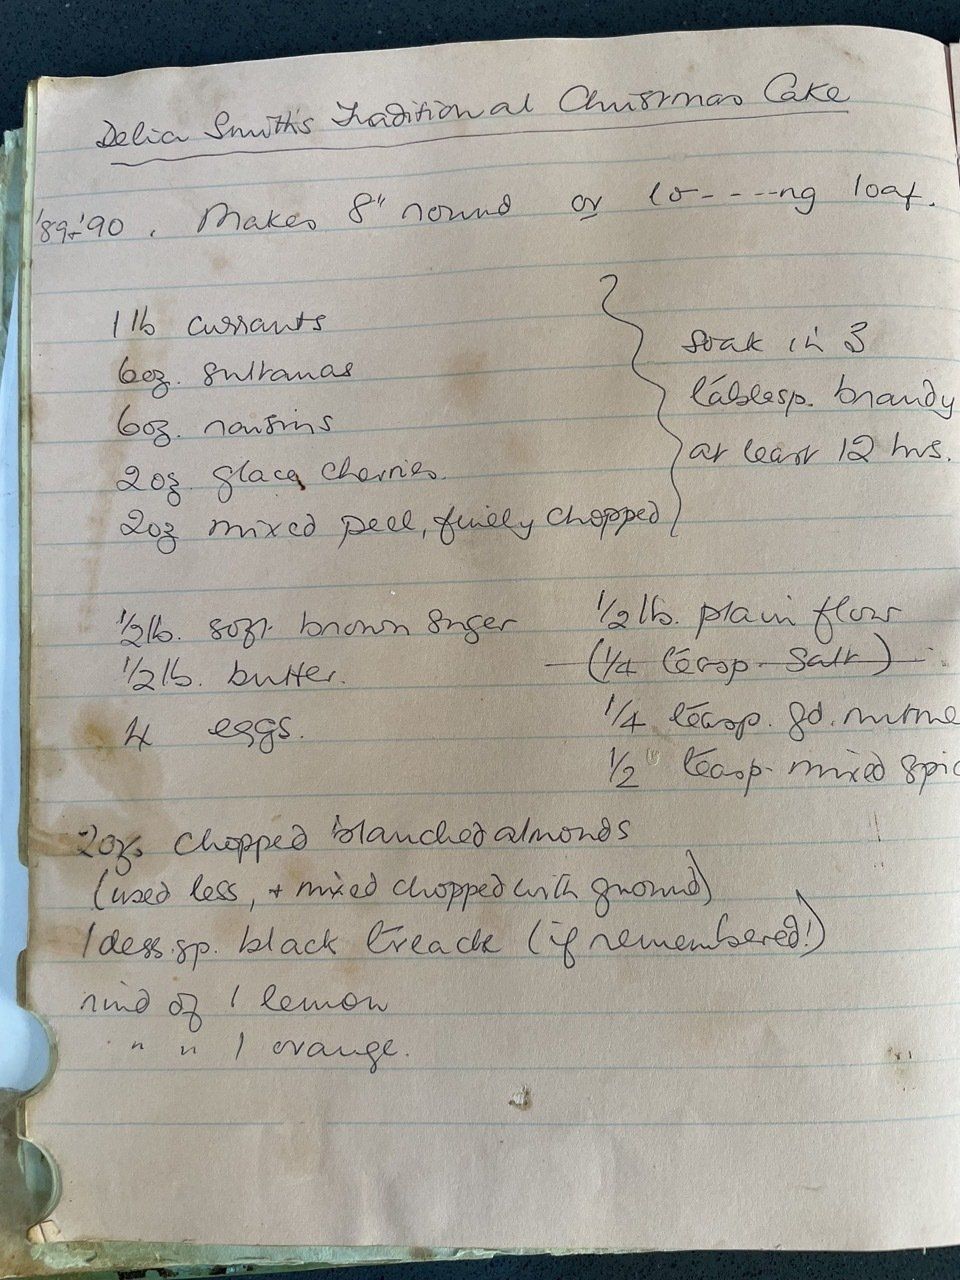 Delia Smith's Traditional Christmas Cake
'89+'90. Makes 8" round or lo----ng loaf.
1 lb currants
6oz. sultanas
6oz. raisins
2oz. glacé cherries.
2oz mixed peel, finely chopped
soak in 3
tablesp. brandy
at least 12 hrs.
1/2 lb. soft brown suger
1/2 lb. butter.
4 eggs.
1/2 lb. plain flour
(1/4 teasp. salt)
1/4 teasp. gd. nutme
1/2 teasp. mixed spic
2ozs chopped blanched almonds
(used less, + mixed chopped with ground)
1 dess.sp. black treacle (if remembered!)
rind of 1 lemon
" " 1 orange.